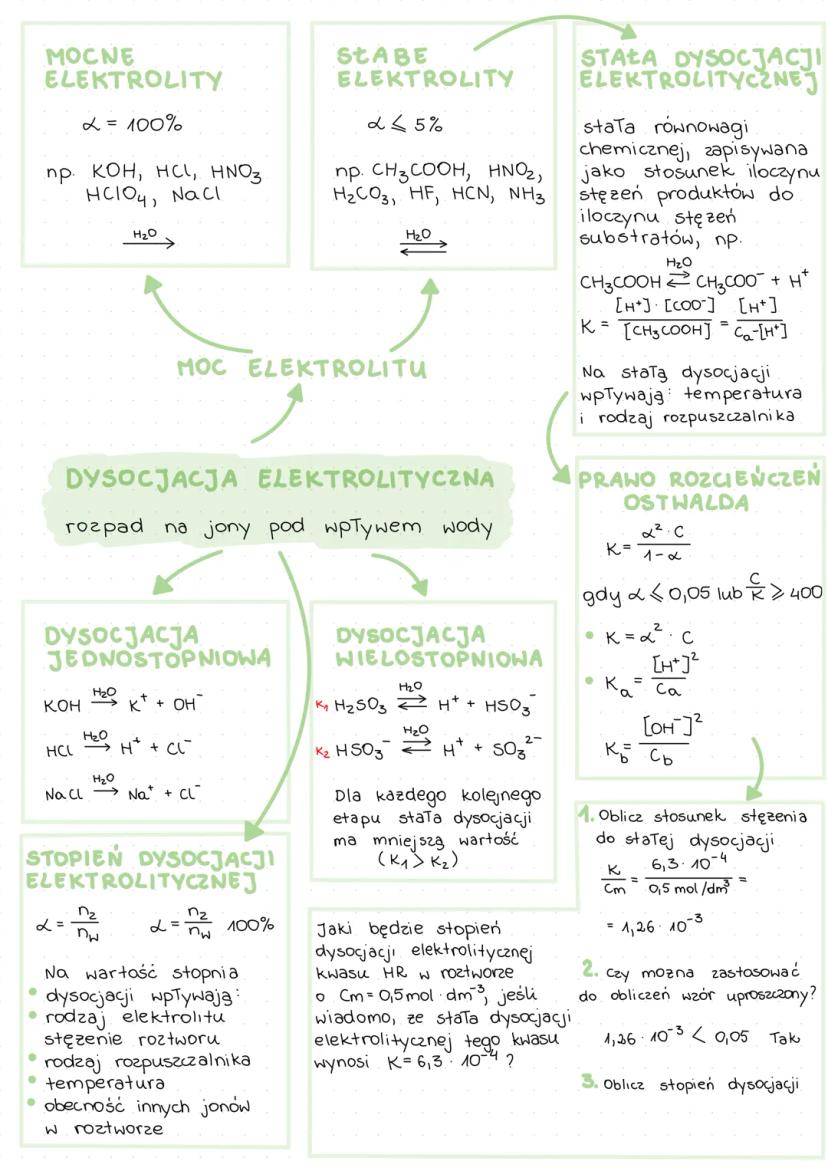 MOCNE
ELEKTROLITY
α = 100%
np. KOH, HCl, HNO₃
HClO₄, NaCl
H₂O
→
SŁABE
ELEKTROLITY
α ⩽ 5%
np. CH₃COOH, HNO₂,
H₂CO₃, HF, HCN, NH₃
H₂O
⇄
STAŁA DYSOCJACJI
ELEKTROLITYCZNEJ
stała równowagi
chemicznej, zapisywana
jako stosunek iloczynu
stężeń produktów do
iloczynu stężeń
substratów, np.
H₂O
CH₃COOH ⇄ CH₃COO⁻ + H⁺
K = [H⁺] · [COO⁻] / [CH₃COOH] = [H⁺] / Cₐ-[H⁺]
Na stałą dysocjacji
wpływają: temperatura
i rodzaj rozpuszczalnika
MOC ELEKTROLITU
DYSOCJACJA ELEKTROLITYCZNA
rozpad na jony pod wpływem wody
PRAWO ROZCIEŃCZEŃ
OSTWALDA
K = α² · C / 1-α
gdy α ⩽ 0,05 lub C/K ⩾ 400
• K = α² · C
• Kₐ = [H⁺]² / Cₐ
K_b = [OH⁻]² / C_b
DYSOCJACJA
JEDNOSTOPNIOWA
H₂O
KOH → K⁺ + OH⁻
H₂O
HCl → H⁺ + Cl⁻
H₂O
NaCl → Na⁺ + Cl⁻
DYSOCJACJA
WIELOSTOPNIOWA
H₂O
K₁ H₂SO₃ ⇄ H⁺ + HSO₃⁻
H₂O
K₂ HSO₃⁻ ⇄ H⁺ + SO₃²⁻
Dla każdego kolejnego
etapu stała dysocjacji
ma mniejszą wartość
(K₁ > K₂)
STOPIEŃ DYSOCJACJI
ELEKTROLITYCZNEJ
α = n_z / n_w α = n_z / n_w 100%
Na wartość stopnia
• dysocjacji wpływają:
• rodzaj elektrolitu
stężenie roztworu
• rodzaj rozpuszczalnika
• temperatura
• obecność innych jonów
w roztworze
Jaki będzie stopień
dysocjacji elektrolitycznej
kwasu HR w roztworze
o Cm = 0,5 mol · dm⁻³, jeśli
wiadomo, że stała dysocjacji
elektrolitycznej tego kwasu
wynosi K = 6,3 · 10⁻⁴ ?
1. Oblicz stosunek stężenia
do stałej dysocjacji
K / Cm = 6,3 · 10⁻⁴ / 0,5 mol/dm³ =
= 1,26 · 10⁻³
2. Czy można zastosować
do obliczeń wzór uproszczony?
1,26 · 10⁻³ < 0,05 Tak
3. Oblicz stopień dysocjacji